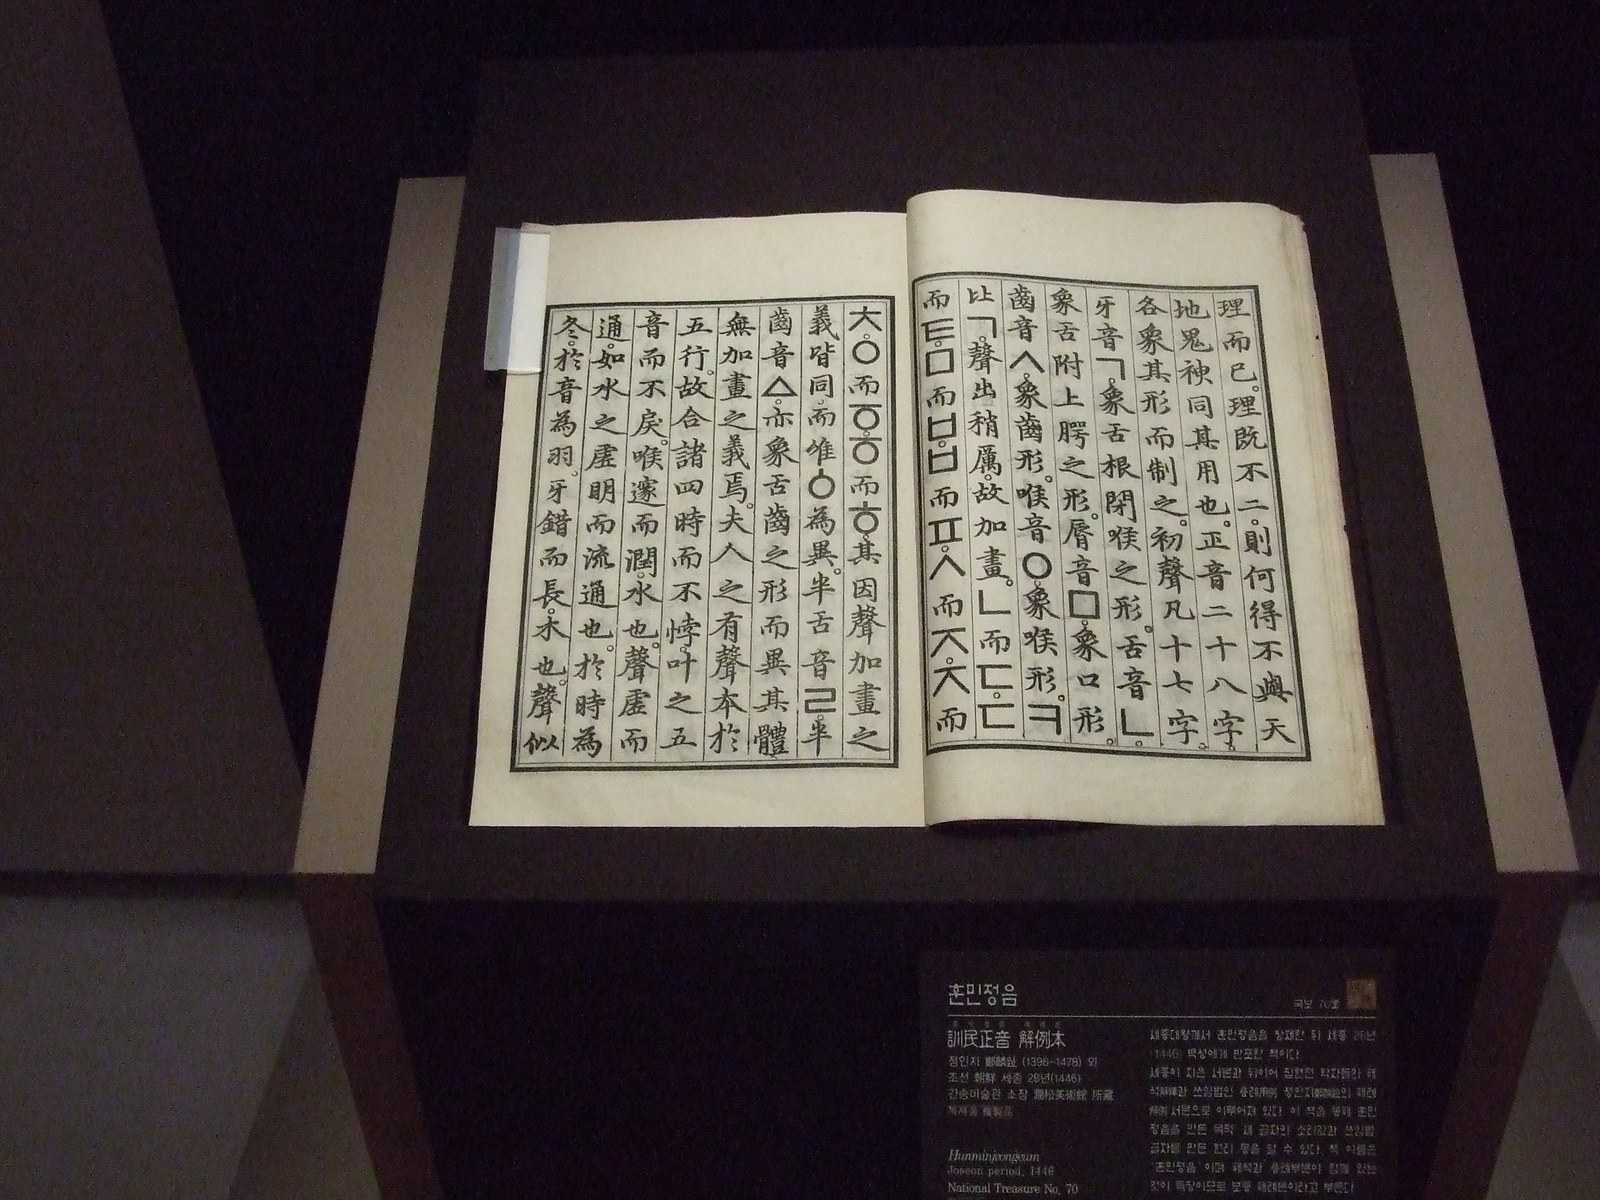 理而已。理既不二。則何得不與天
地鬼神同其用也。正音二十八字。
各象其形而制之。初聲凡十七字。
牙音ㄱ。象舌根閉喉之形。舌音ㄴ。
象舌附上腭之形。脣音ㅁ。象口形。
齒音ㅅ。象齒形。喉音ㅇ。象喉形。ㅋ
比ㄱ。聲出稍厲。故加畫。ㄴ而ㄷ。ㄷ
而ㅌ。ㅁ而ㅂ。ㅂ而ㅍ。ㅅ而ㅈ。ㅈ而
ㅊ。ㅇ而ㆆ。ㆆ而ㅎ。其因聲加畫之
義皆同。而唯ㆁ為異。半舌音ㄹ。半
齒音ㅿ。亦象舌齒之形而異其體。
無加畫之義焉。夫人之有聲本於
五行。故合諸四時而不悖。叶之五
音而不戾。喉邃而潤。水也。聲虛而
通。如水之虛明而流通也。於時為
冬。於音為羽。牙錯而長。木也。聲似
훈민정음
국보 70호
訓民正音 解例本
정인지 鄭麟趾 (1396-1478) 외
조선 朝鮮 세종 28년(1446)
간송미술관 소장 澗松美術館 所藏
복제품 複製品
Hunminjeongeum
Joseon period, 1446
National Treasure No. 70
세종대왕께서 훈민정음을 창제한 뒤 세종 28년
(1446) 백성에게 반포한 책이다
세종이 지은 서문과 뒤이어 집현전 학자들의 해
정음을 만든 목적 새 글자의 소리값과 쓰임법
글자를 만든 원리 등을 알 수 있다. 책 이름은
'훈민정음'이며 해석과 용례부분이 함께 있는
것이 특징이므로 보통 해례본이라고 부른다